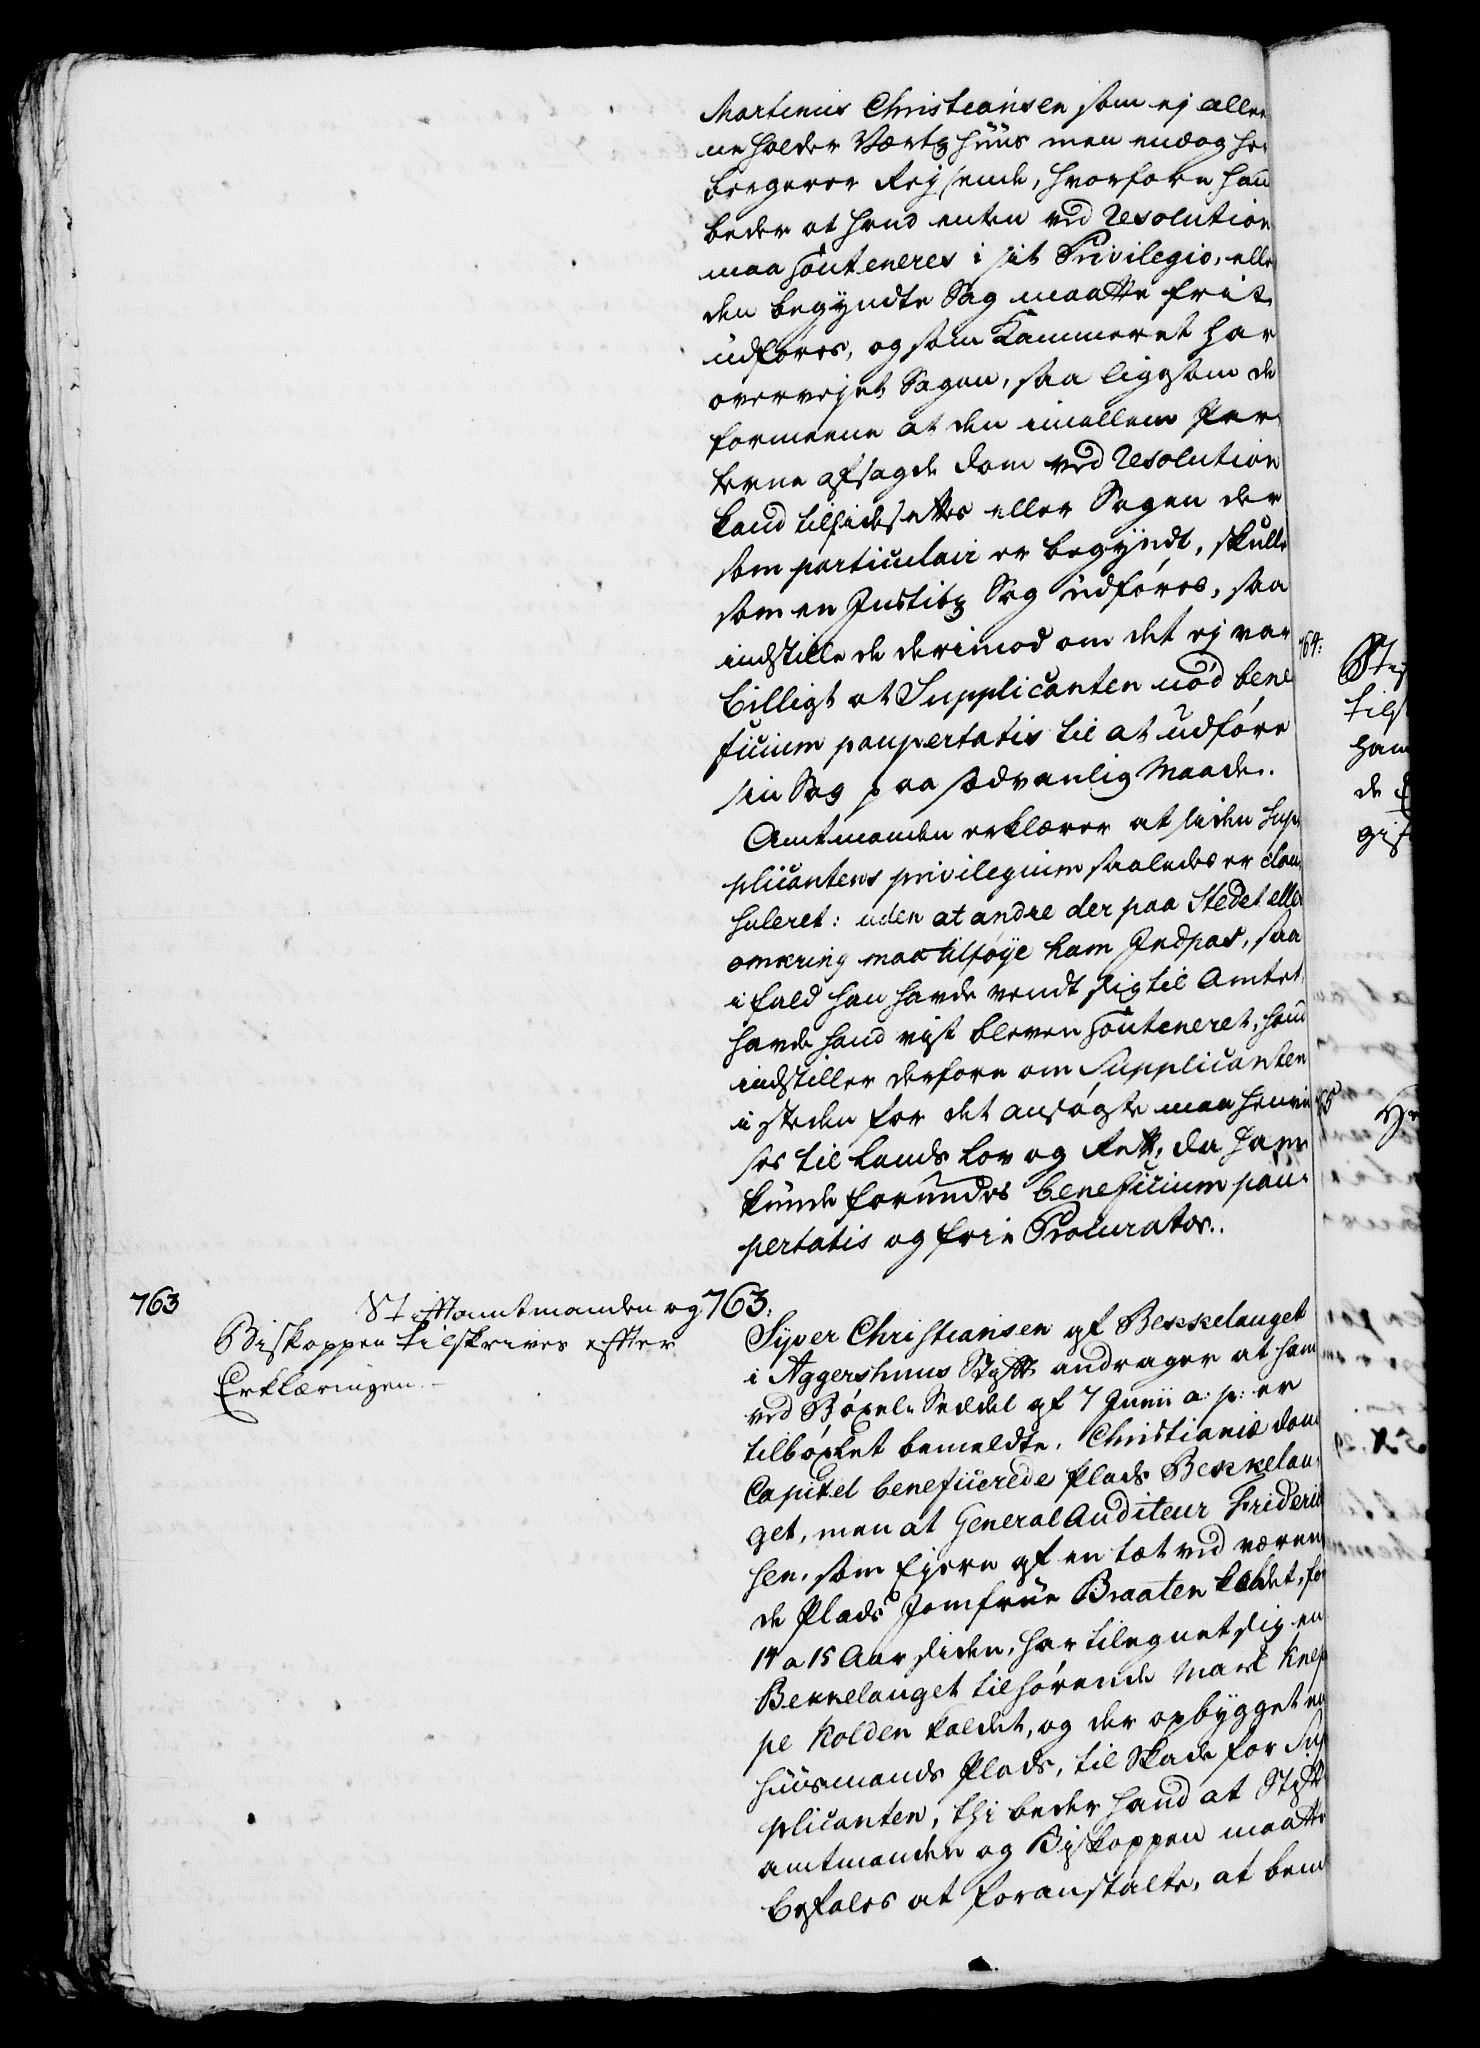 Martinus Christiansen som ej alle
ne holder Vertz Huus men endog he
bergerer Reysende, hvorfore han
beder at hand enten ved Resolution
maa souteneres i sit Privilegio, elle
den begyndte Sag maatte frit
udføres, og som Kammeret har
overvejet Sagen, saa ligesom de
formeene at den imellem Par
terne afsagde Dom ved Resolution
kand tilsidesættes eller Sagen der
som particulair er begyndt, skulle
som en Justitz Sag udføres, saa
indstille de derimod om det ej var
billigt at Supplicanten nød bene
ficium paupertatis til at udføre
sin Sag paa sædvanlig Maade.
Amtmanden erklærer at siden Sup
plicantens privilegium saaledes er clau
suleret: uden at andre der paa Stedet elle
omkring maa tilføye ham Indpas, saa
i fald han havde vendt sig til Amtet,
havde hand vist bleven souteneret, hand
indstiller derfore om Supplicanten
i steden for det ansøgte maa henvii
ses til Lands Lov og Rett, da ham
kunde forundes beneficium pau
pertatis og frie Procurator.
763
Stiftamtmanden og
Biskoppen tilskrives efter
Erklæringen.
763.
Syver Christiansen af Bekkelauget
i Aggershuus Stift andrager at han
ved Bøxel-Seddel af 7 Junii a: p: er
tilbøxlet bemeldte, Christianiæ dom
Capitel beneficerede Plads Bekkelau
get, men at General Auditeur Frideric
sen, som Ejere af en tæt ved væren
de Plads Jomfrue Braaten kaldet, for
14 a 15 Aar siden, har tilegnet sig en
Bekkelauget tilhørende Mark Knep
pe Kolden kaldet, og der opbygget en
Huusmands Plads, til Skade for Sup
plicanten, thi beder hand at Stift
amtmanden og Biskoppen maatte
befales at foranstalte, at bem
764: